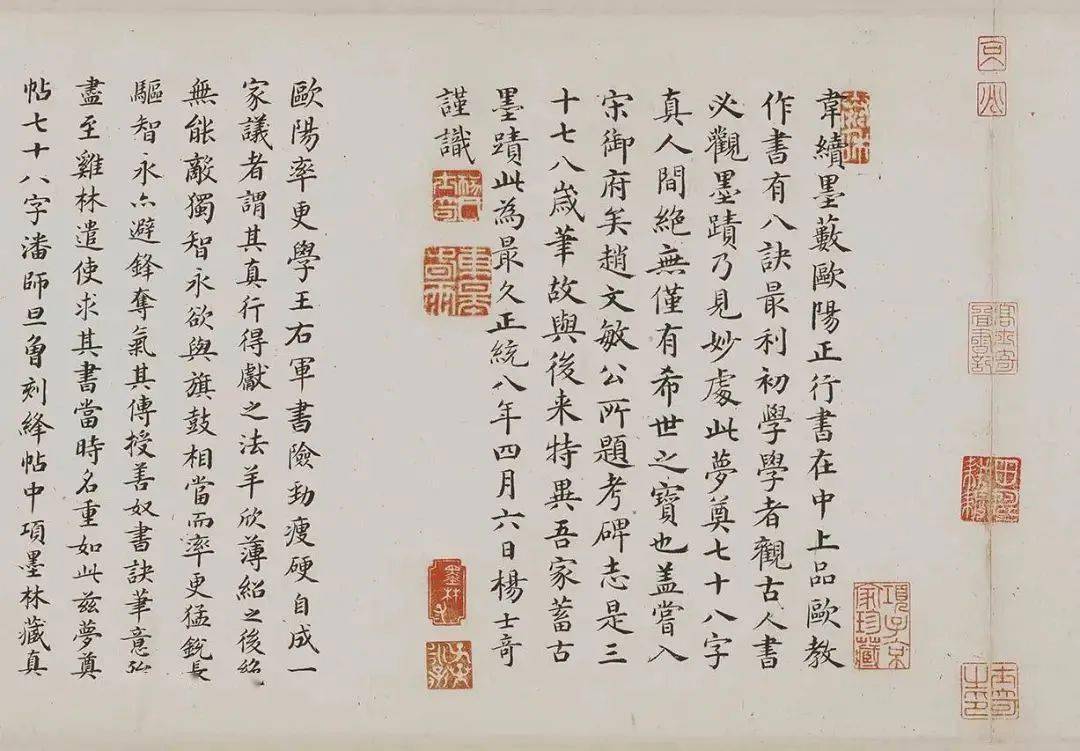 韋續墨藪歐陽正行書在中上品歐教
作書有八訣最利初學學者觀古人書
必觀墨蹟乃見妙處此夢奠七十八字
真人間絶無僅有希世之寶也盖嘗入
宋御府矣趙文敏公所題考碑志是三
十七八歲筆故與後来特異吾家蓄古
墨蹟此為最久正統八年四月六日楊士竒
謹識
歐陽率更學王右軍書險勁瘦硬自成一
家議者謂其真行得獻之法羊欣薄紹之後絶
無能敵獨智永欲與旗鼓相當而率更猛銳長
驅智永亦避鋒奪氣其傳授善奴書訣筆意
盡至雞林遣使求其書當時名重如此兹夢奠
帖七十八字潘師旦曾刻絳帖中項墨林藏真
項子京
家珍藏
墨林